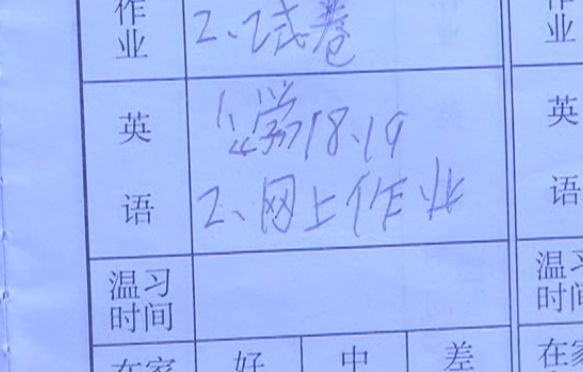 作
业
2、试卷
作
业
英
语
1、学习18.19
2、网上作业
英
语
温习
时间
温习
时间
在家
好
中
差
在家